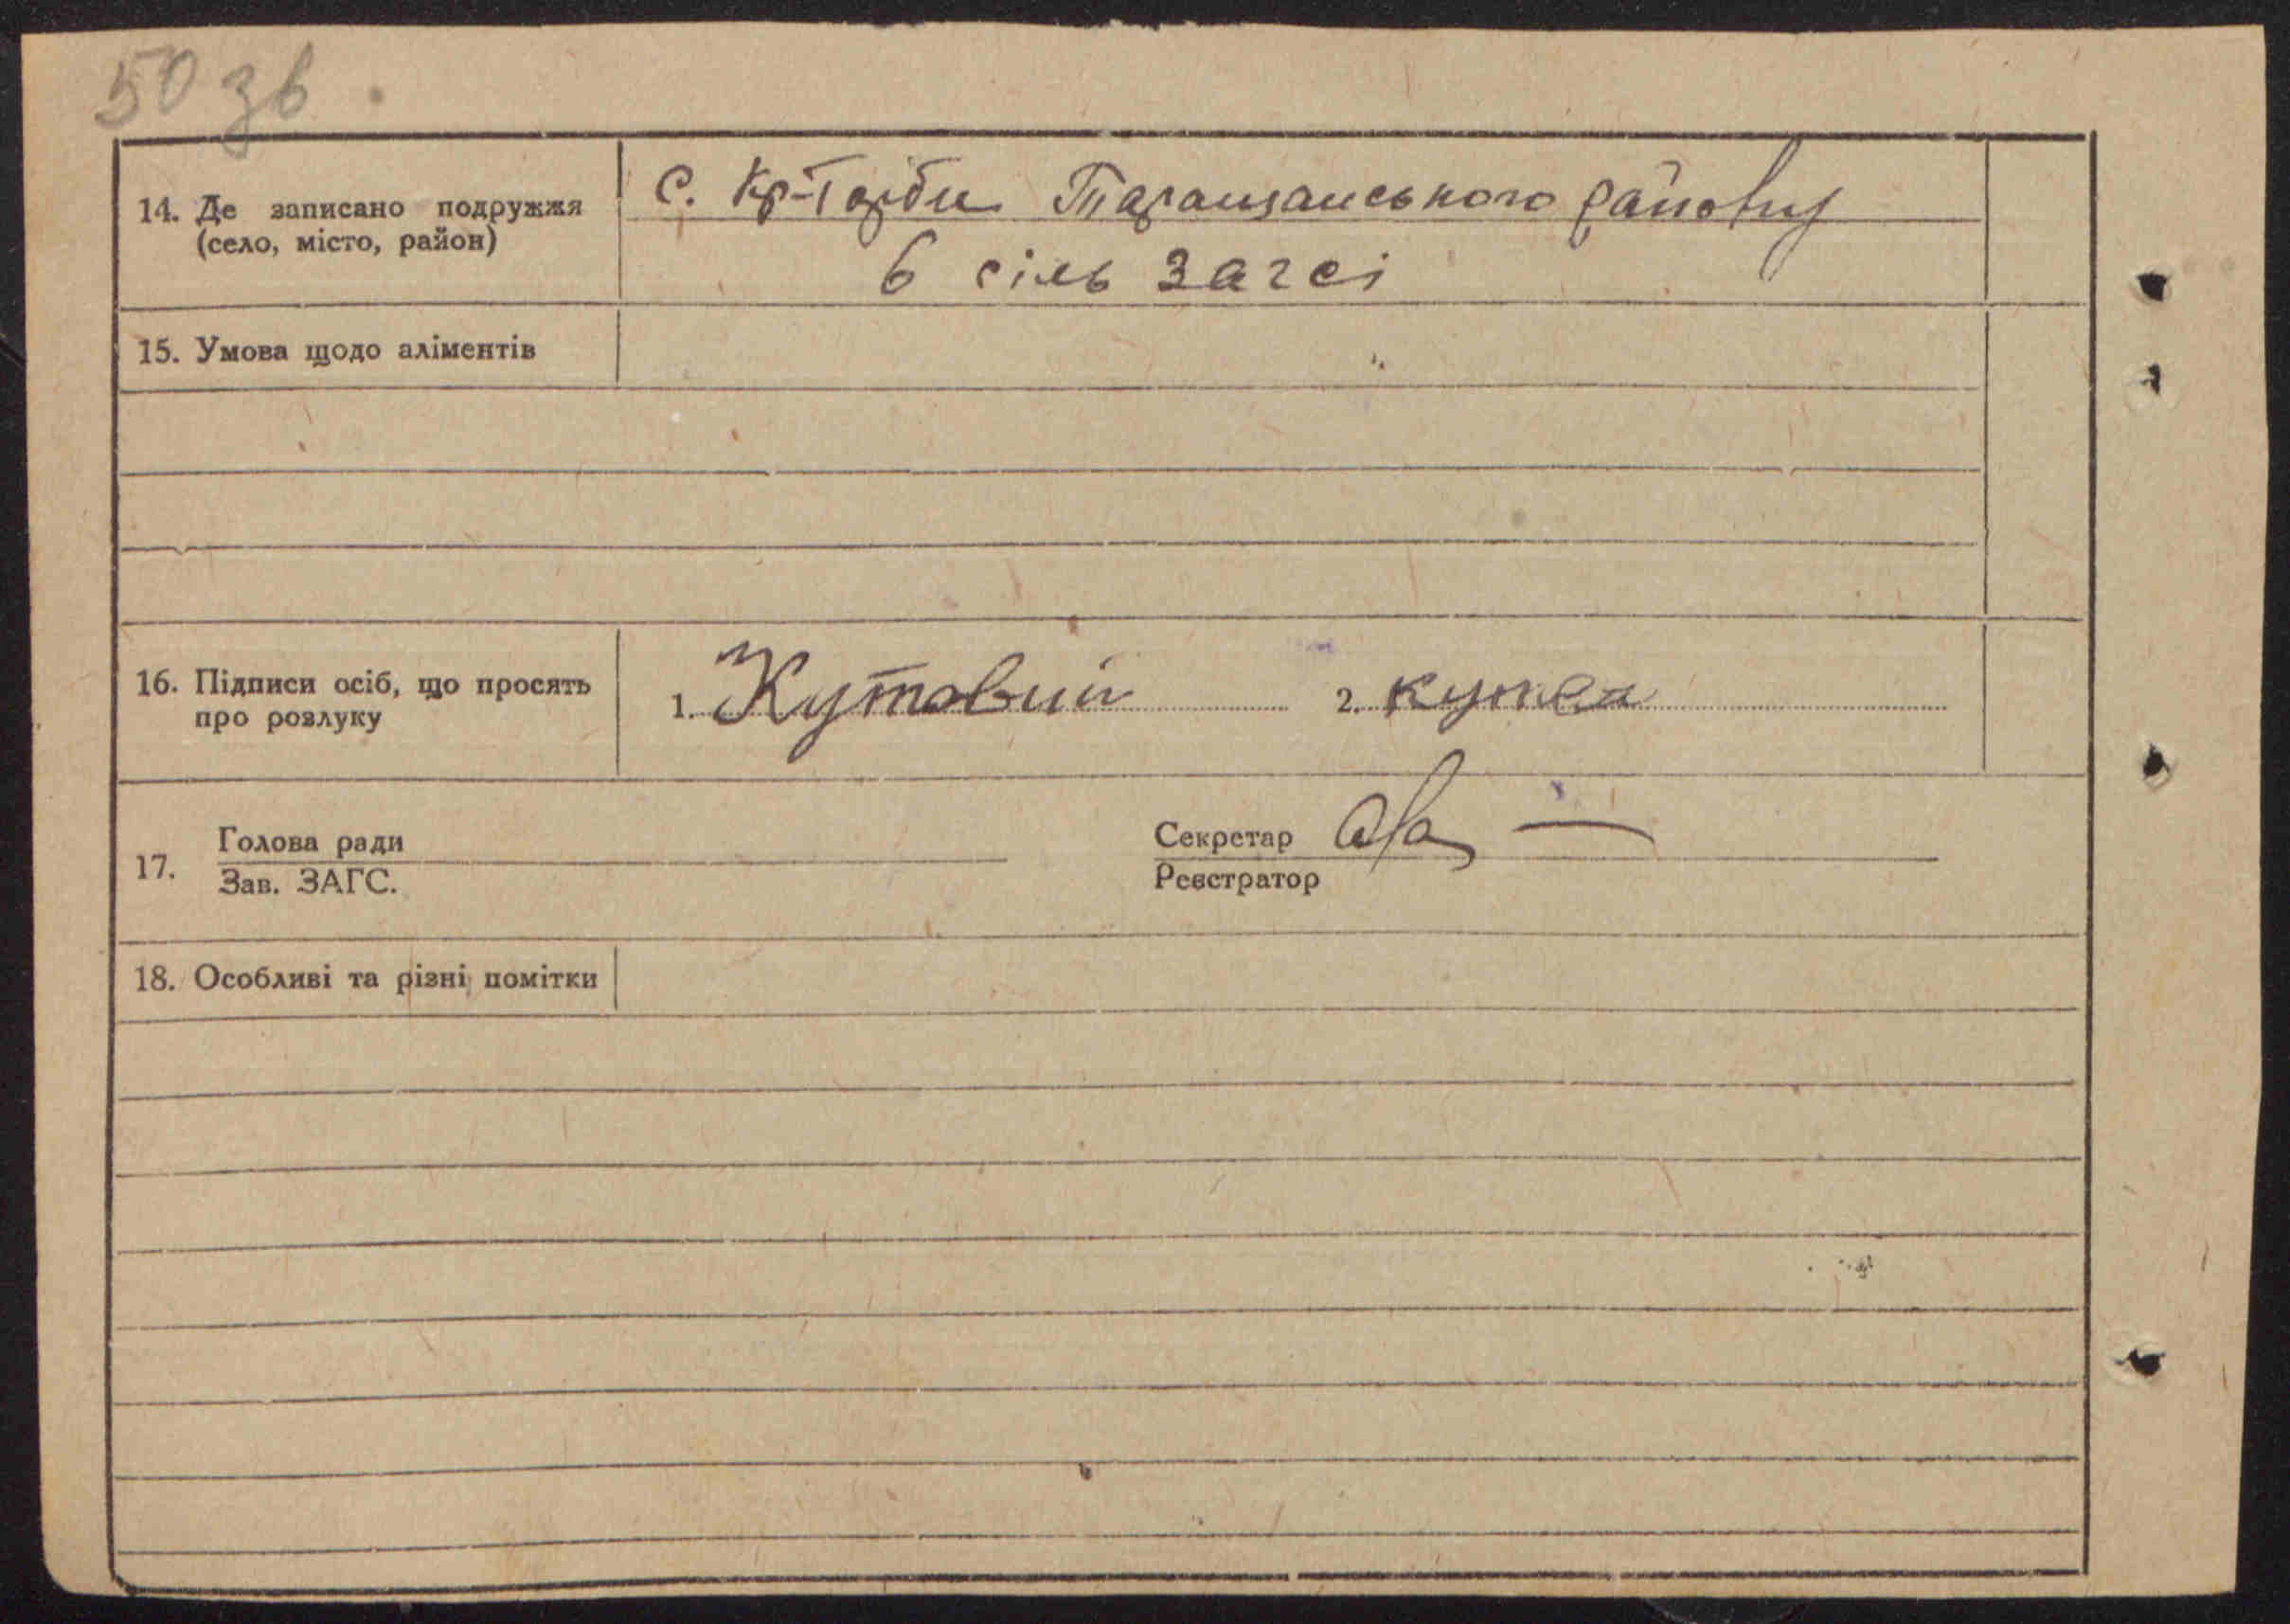 50 зв
14. Де записано подружжя
(село, місто, район)
С. Кр-Горби Таращанського району
в сіль загсі
15. Умова щодо аліментів
16. Підписи осіб, що просять
про розлуку
1. Кутовий
2.
17.
Голова ради
Зав. ЗАГС.
Секретар
Реєстратор
18. Особливі та різні помітки